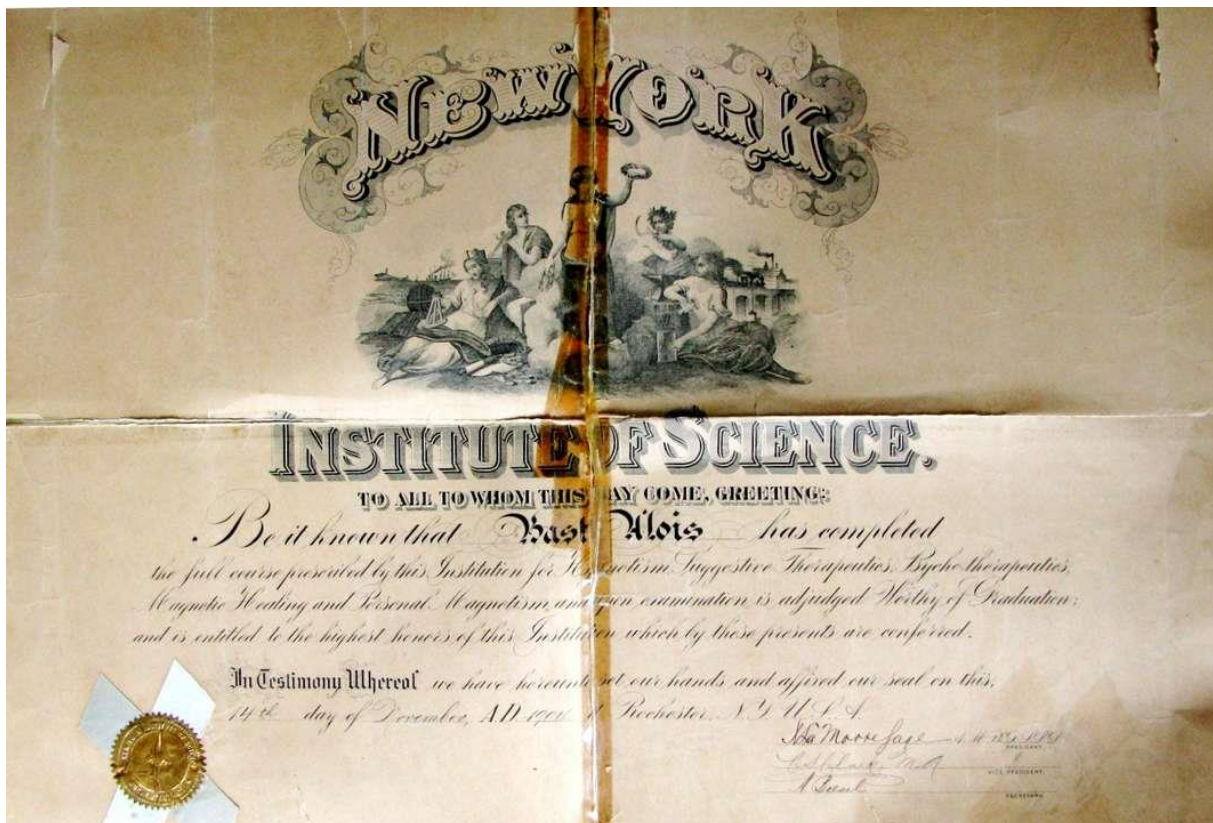 NEW YORK
INSTITUTE OF SCIENCE.
TO ALL TO WHOM THIS MAY COME, GREETING:
Be it known that Bast Alois has completed
the full course prescribed by this Institution for Hypnotism, Suggestive Therapeutics, Psycho-therapeutics,
Magnetic Healing and Personal Magnetism, and upon examination is adjudged Worthy of Graduation;
and is entitled to the highest honors of this Institution which by these presents are conferred.
In Testimony Whereof we have hereunto set our hands and affixed our seal on this,
14th day of A.D. at Rochester, N.Y. U.S.A.
PRESIDENT
VICE PRESIDENT
SECRETARY